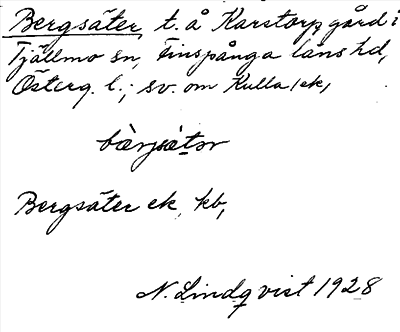 Bergsäter, t. å Karstorp, gård i
Tjällmo sn, Finspånga läns hd,
Österg. l.; sv. om Kulla, ek,
bàrjsä̀tər
Bergsäter ek, kb,
N. Lindqvist 1928